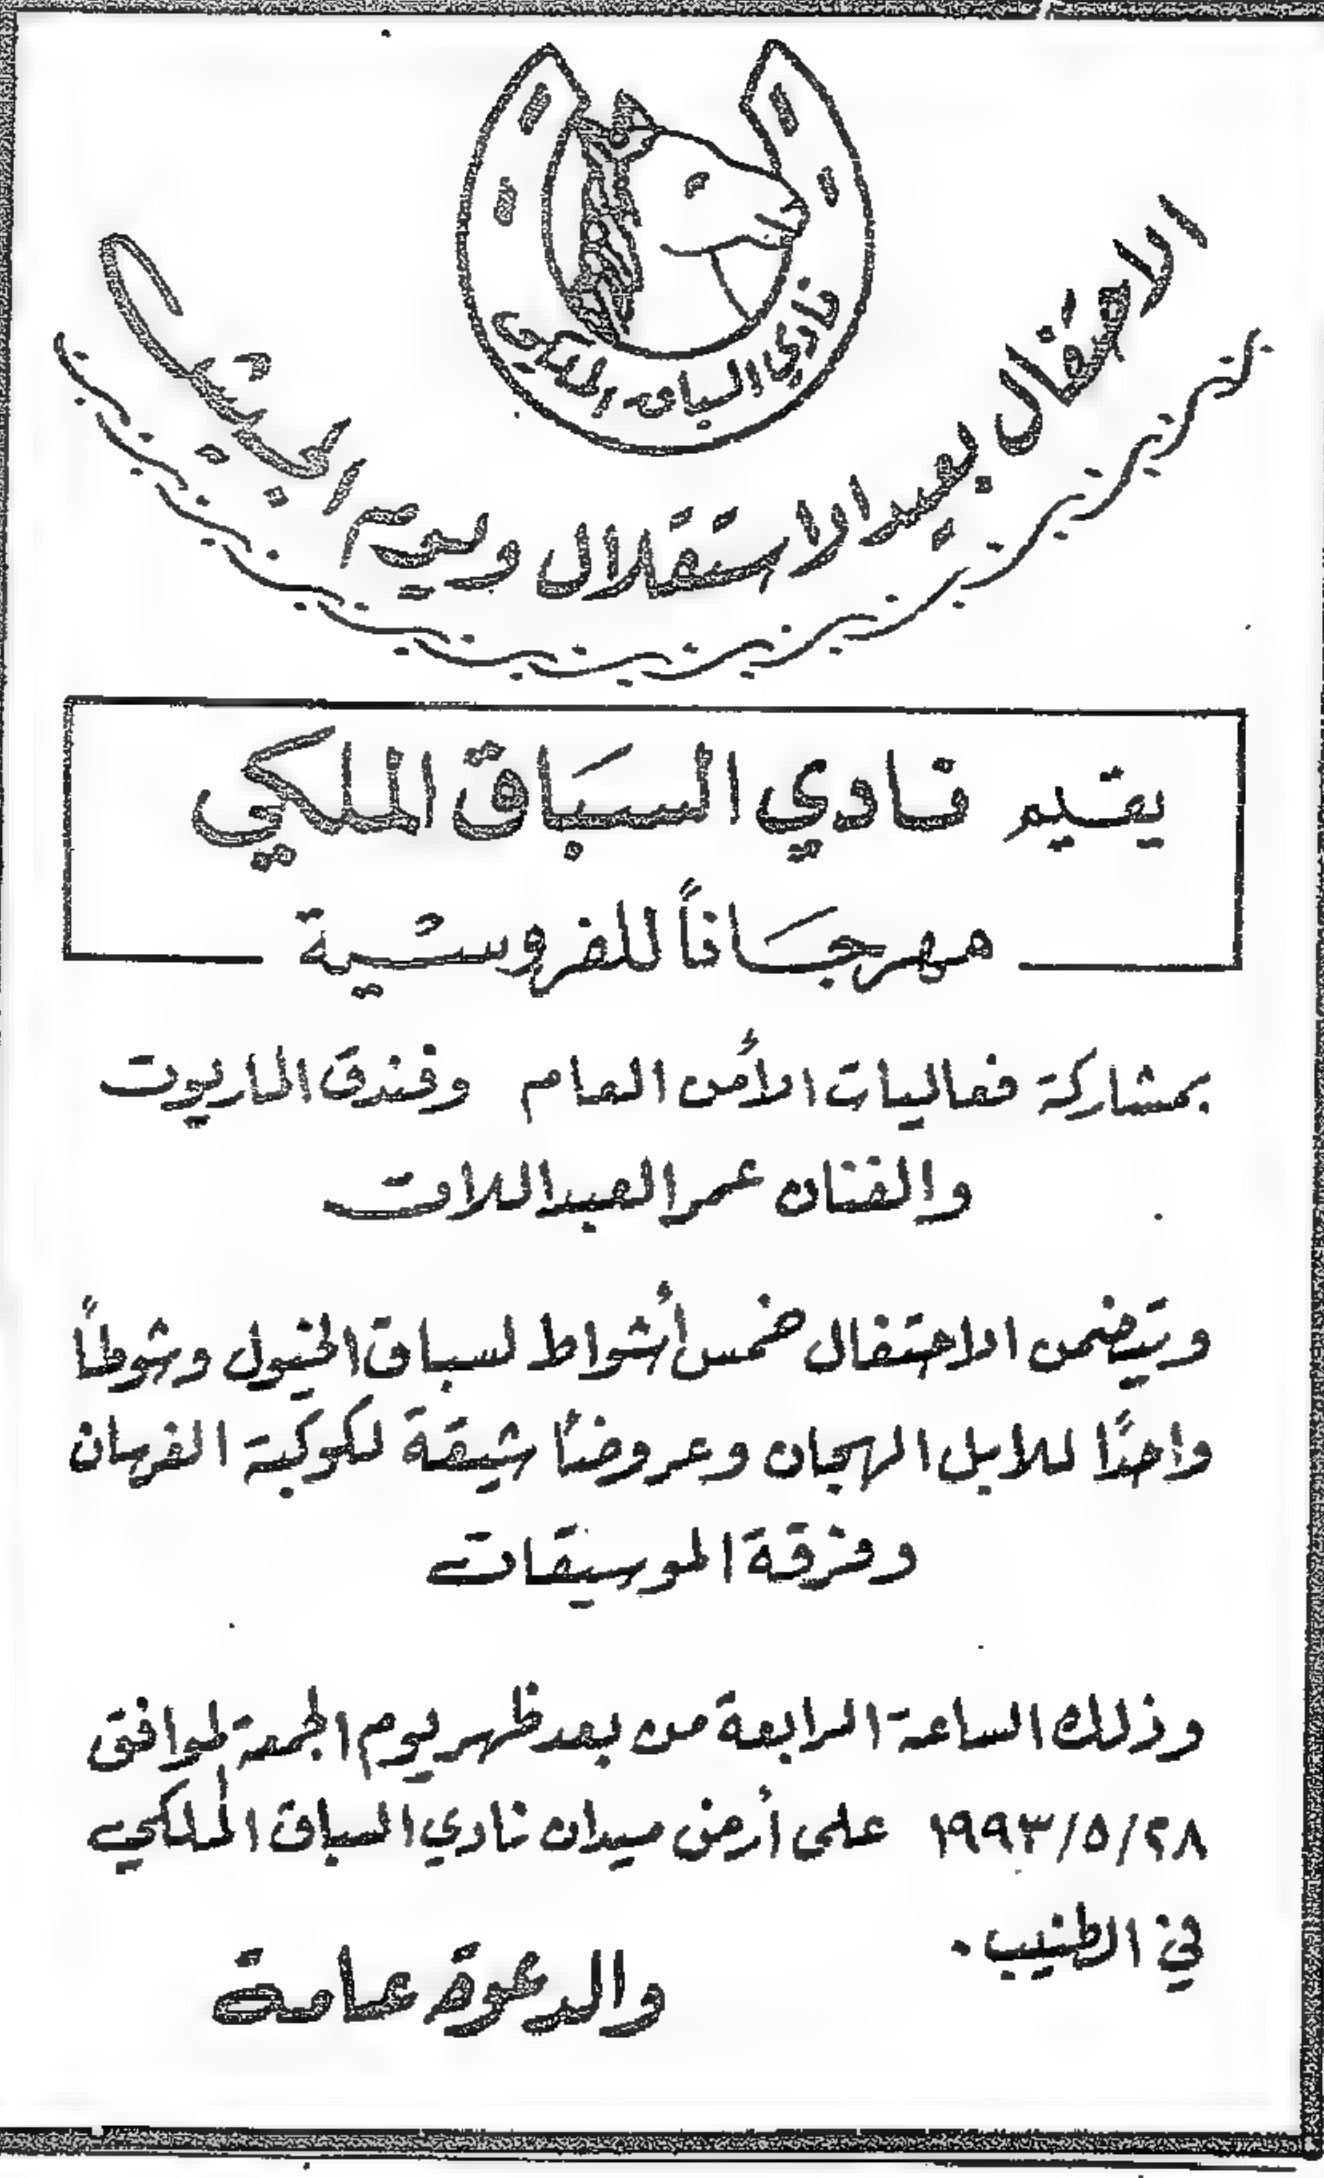 نادي السباق الملكي
الاحتفال بعيد الاستقلال ويوم الجيش
يقيم نادي السبَاق الملكي
مهرجَاناً للفروسية
بمشاركة فعاليات الأمن العام وفندق الماريوت
والفنان عمر العبداللات
ويتضمن الاحتفال خمس أشواط لسباق الخيول وشوطاً
واحداً للابل الهجان وعروضاً شيقة لكوكبة الفرسان
وفرقة الموسيقات
وذلك الساعة الرابعة من بعد ظهر يوم الجمعة لموافق
٢٨/٥/١٩٩٣ على أرض ميدان نادي السباق الملكي
في الطنيب .
والدعوة عامة